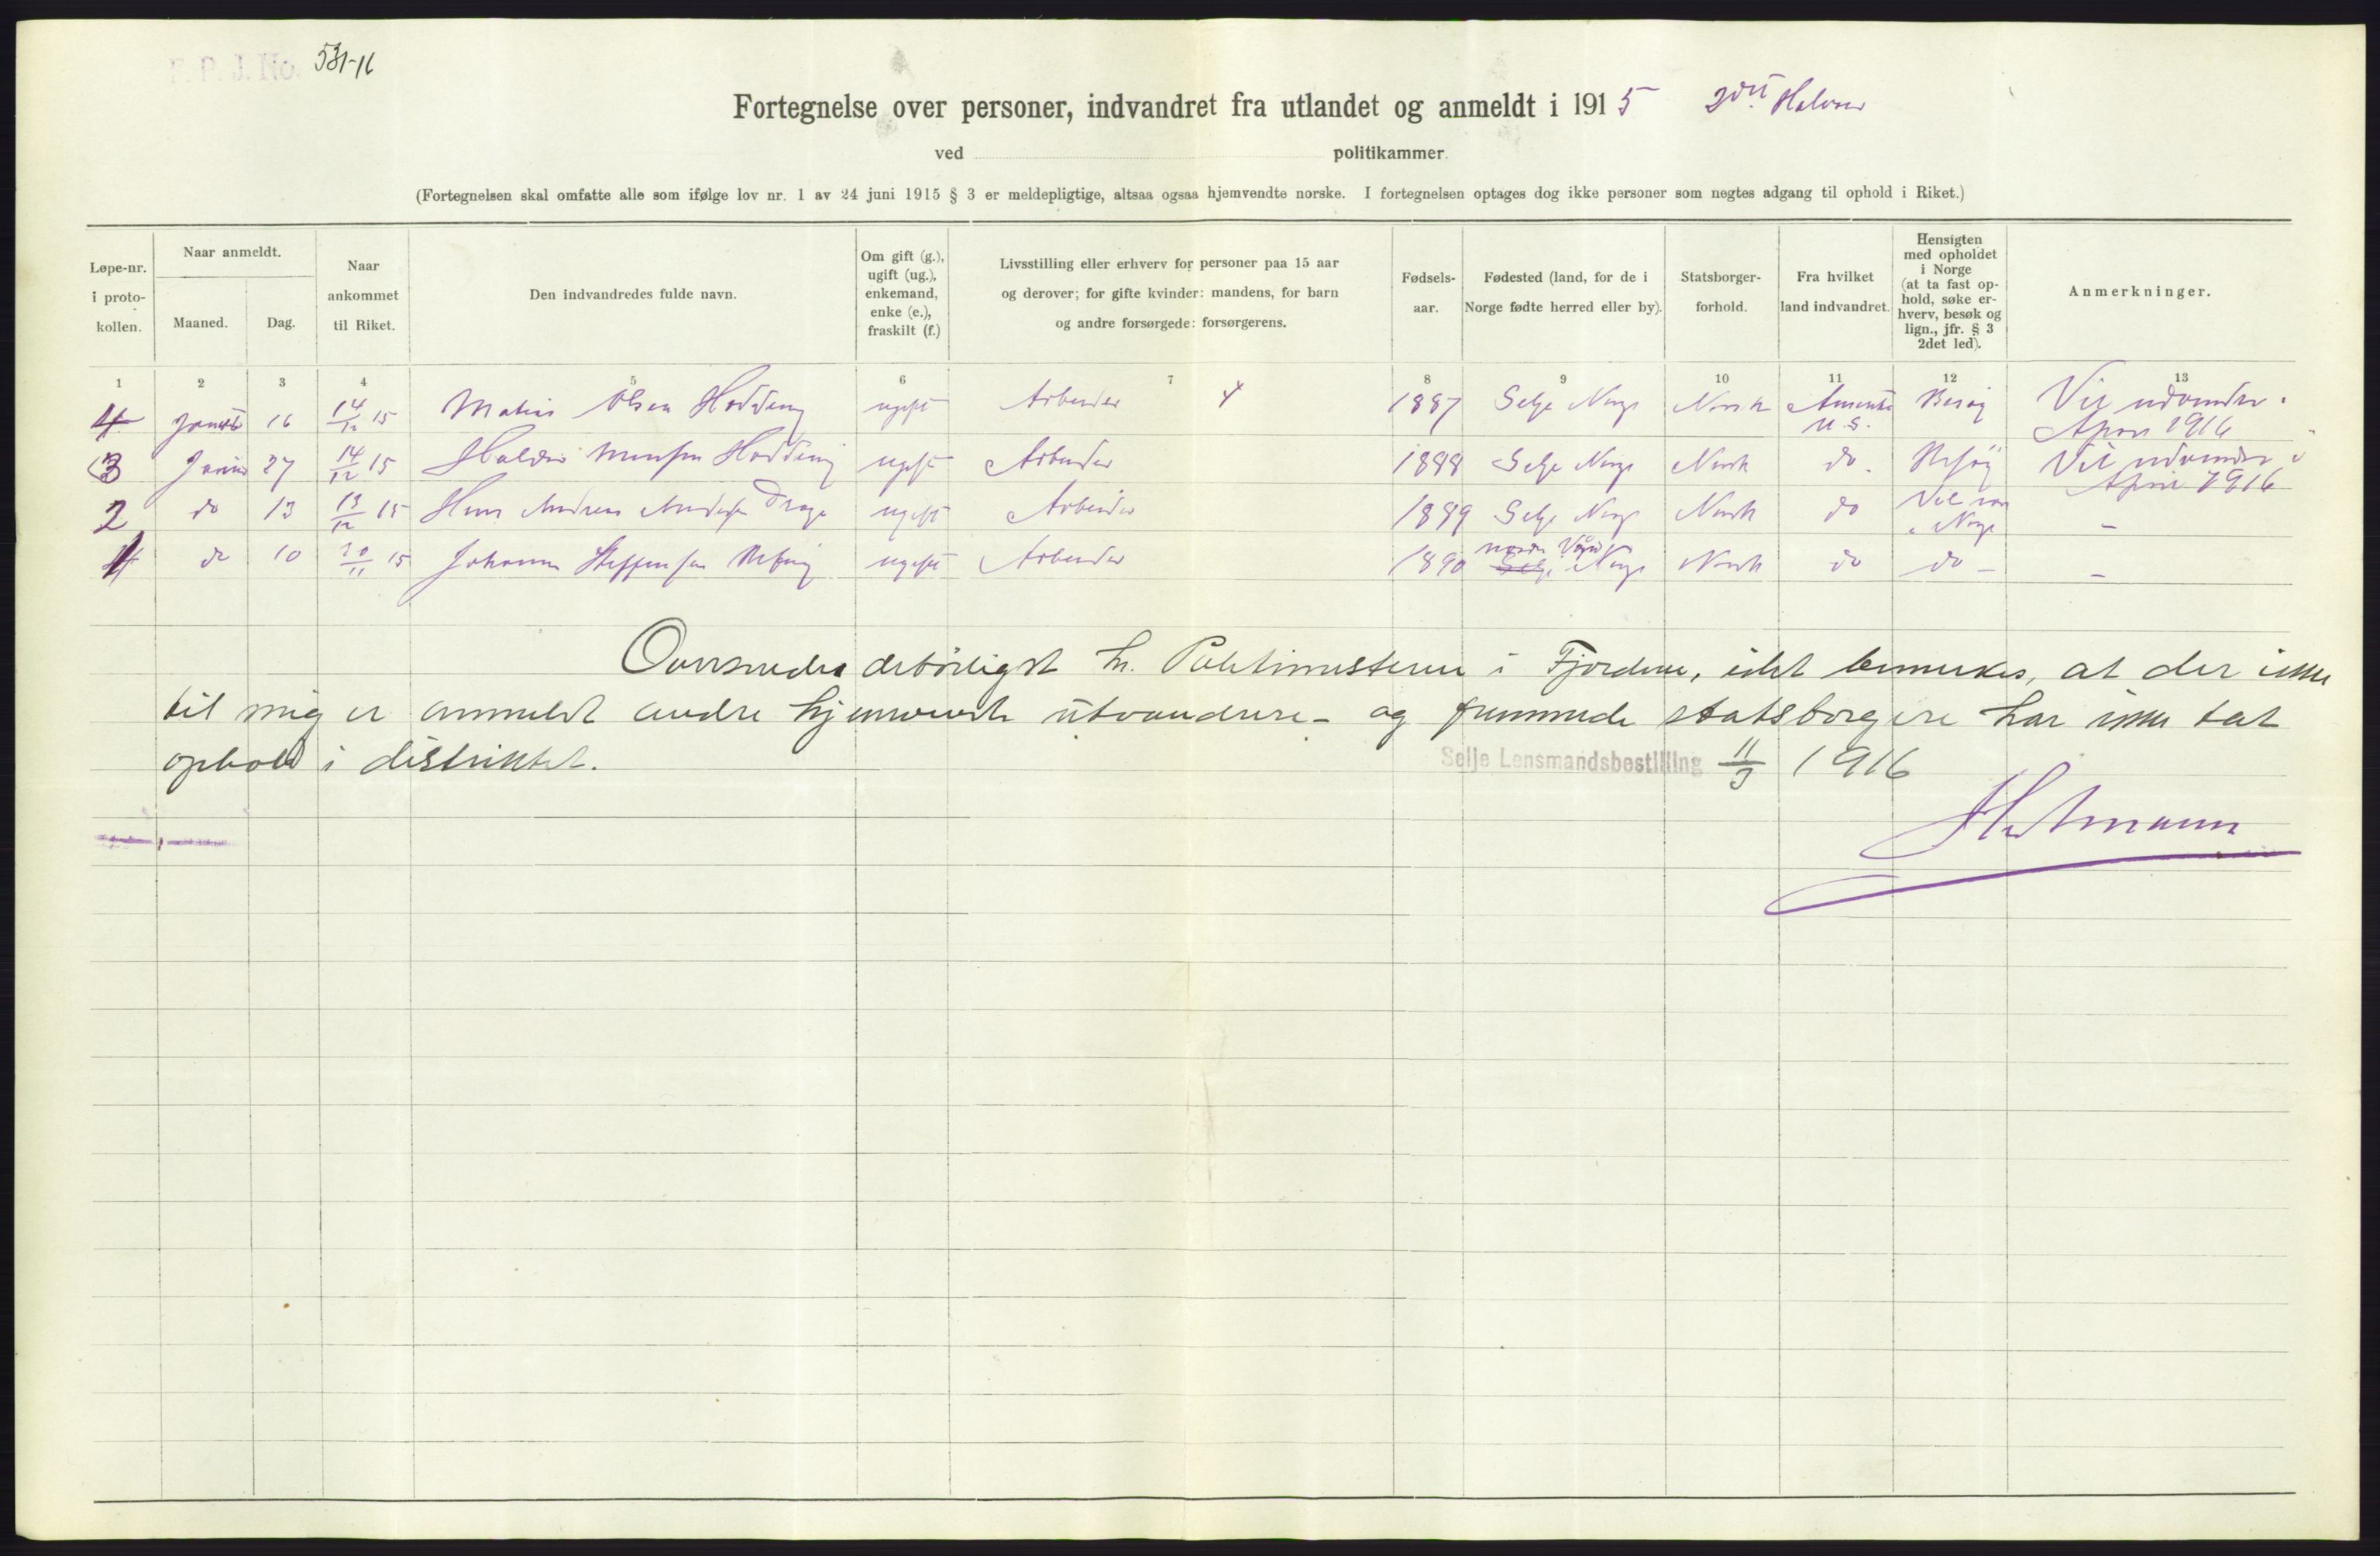 F. P. J. No. 531-16
Fortegnelse over personer, indvandret fra utlandet og anmeldt i 1915
ved politikammer.
(Fortegnelsen skal omfatte alle som ifølge lov nr. 1 av 24 juni 1915 § 3 er meldepligtige, altsaa ogsaa hjemvendte norske. I fortegnelsen optages dog ikke personer som negtes adgang til ophold i Riket.)
Løpe-nr.
i proto-
kollen.
Naar anmeldt.
Maaned.
Dag.
Naar
ankommet
til Riket.
Den indvandredes fulde navn.
Om gift (g.),
ugift (ug.),
enkemand,
enke (e.),
fraskilt (f.)
Livsstilling eller erhverv for personer paa 15 aar
og derover; for gifte kvinder: mandens, for barn
og andre forsørgede: forsørgerens.
Fødsels-
aar.
Fødested (land, for de i
Norge fødte herred eller by).
Statsborger-
forhold.
Fra hvilket
land indvandret.
Hensigten
med opholdet
i Norge
(at ta fast op-
hold, søke er-
hverv, besøk og
lign., jfr. § 3
2det led).
Anmerkninger.
1 2 3 4 5 6 7 8 9 10 11 12 13
4 16 14/12 15 Olsen ugift Arbeider 4 1887 Selje Norge Norsk Amerika Besøg Vil
U.S. April 1916
3 27 14/12 15 ugift Arbeider 1888 Selje Norge Norsk do. Besøg Vil
April 1916
2 do 13 13/12 15 Hans Andreas Drage ugift Arbeider 1889 Selje Norge Norsk do Vil
Norge -
1 do 10 30/11 15 Johannes Steffensen ugift Arbeider 1890 Norge Norsk do do - -
Oversendes ærbødigst hr. Politimesteren i Fjordene, idet bemerkes, at der ikke
til mig er anmeldt andre hjemvendte utvandrere - og fremmede statsborgere har ikke tat
ophold i distriktet.
Selje Lensmandsbestilling 11/3 1916